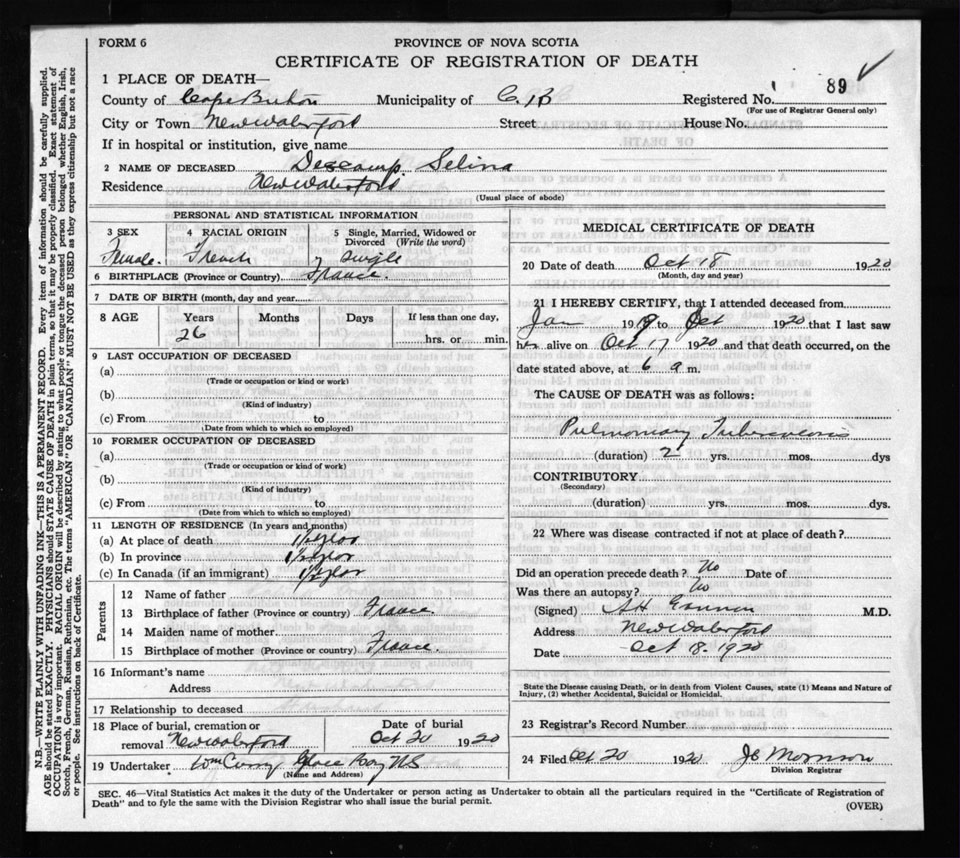 FORM 6
PROVINCE OF NOVA SCOTIA
CERTIFICATE OF REGISTRATION OF DEATH
1 PLACE OF DEATH—
County of Cape Breton Municipality of C. B Registered No. 89 ✓
(For use of Registrar General only)
City or Town New Waterford Street House No.
If in hospital or institution, give name
2 NAME OF DECEASED Descamp Selina
Residence New Waterford
(Usual place of abode)
PERSONAL AND STATISTICAL INFORMATION
3 SEX 4 RACIAL ORIGIN 5 Single, Married, Widowed or
Divorced (Write the word)
Female. French Single
6 BIRTHPLACE (Province or Country) France.
7 DATE OF BIRTH (month, day and year
8 AGE Years Months Days If less than one day,
26 hrs. or min.
9 LAST OCCUPATION OF DECEASED
(a)
(Trade or occupation or kind or work)
(b)
(Kind of industry)
(c) From to
(Date from which to which so employed)
10 FORMER OCCUPATION OF DECEASED
(a)
(Trade or occupation or kind of work)
(b)
(Kind of industry)
(c) From to
(Date from which to which so employed)
11 LENGTH OF RESIDENCE (In years and months)
(a) At place of death 1½ year
(b) In province 1½ year
(c) In Canada (if an immigrant) 1½ year
Parents
12 Name of father
13 Birthplace of father (Province or country) France.
14 Maiden name of mother
15 Birthplace of mother (Province or country) France.
16 Informant's name
Address
17 Relationship to deceased
18 Place of burial, cremation or Date of burial
removal New Waterford Oct 20 1920
19 Undertaker Wm Curry Glace Bay NS
(Name and Address)
MEDICAL CERTIFICATE OF DEATH
20 Date of death Oct 18 1920
(Month, day and year)
21 I HEREBY CERTIFY, that I attended deceased from
Jan 1919 to Oct 1920 that I last saw
her alive on Oct 17 1920 and that death occurred, on the
date stated above, at 6 a m.
The CAUSE OF DEATH was as follows:
Pulmonary Tuberculosis
(duration) 2 yrs. mos. dys
CONTRIBUTORY
(Secondary)
(duration) yrs. mos. dys.
22 Where was disease contracted if not at place of death?
Did an operation precede death? No Date of
Was there an autopsy? No
(Signed) M.D.
Address New Waterford
Date Oct 18. 1920
State the Disease causing Death, or in death from Violent Causes, state (1) Means and Nature of
Injury, (2) whether Accidental, Suicidal or Homicidal.
23 Registrar's Record Number
24 Filed Oct 20 1920 Morrison
Division Registrar
SEC. 46—Vital Statistics Act makes it the duty of the Undertaker or person acting as Undertaker to obtain all the particulars required in the "Certificate of Registration of
Death" and to fyle the same with the Division Registrar who shall issue the burial permit.
(OVER)
N.B.—WRITE PLAINLY WITH UNFADING INK—THIS IS A PERMANENT RECORD. Every item of information should be carefully supplied.
AGE should be stated EXACTLY. PHYSICIANS should STATE CAUSE OF DEATH in plain terms, so that it may be properly classified. Exact statement of
OCCUPATION is very important. RACIAL ORIGIN will be described by stating to what people or tongue the deceased person belonged whether English, Irish,
Scotch, French, German, Russian, Ruthenian, etc. The terms "AMERICAN" OR "CANADIAN" MUST NOT BE USED as they express citizenship but not a race
or people. See instructions on back of Certificate.